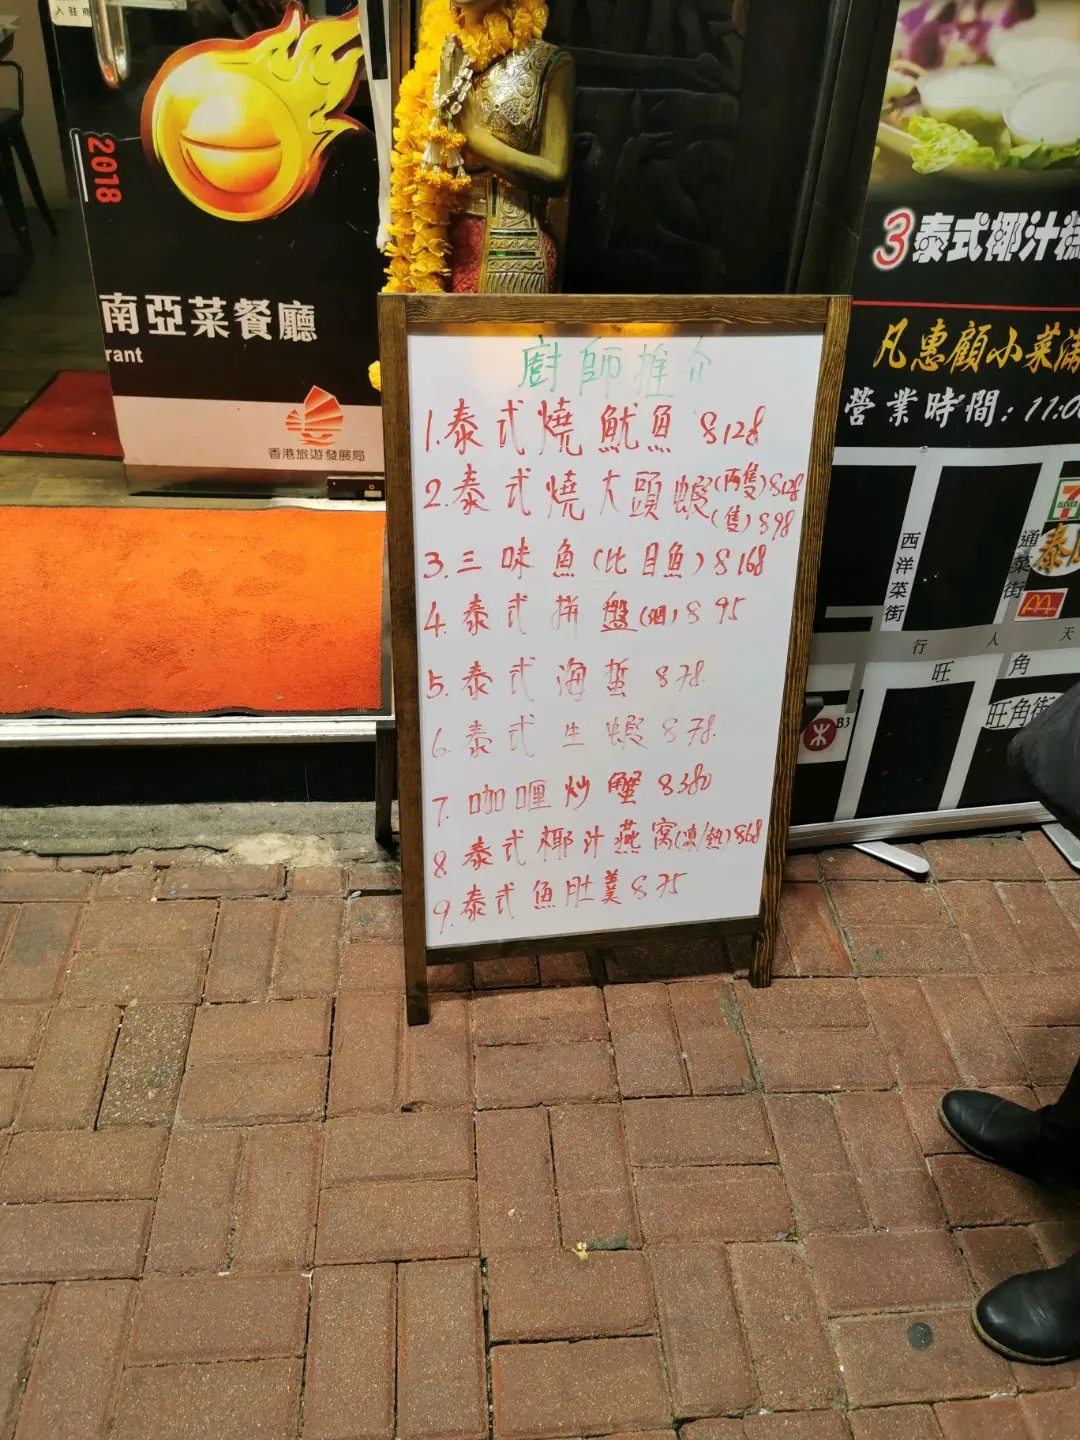 入駐商
2018
南亞菜餐廳
rant
香港旅遊發展局
廚師推介
1.泰式燒魷魚 $128
2.泰式燒大頭蝦(兩隻)$128
(隻)$98
3.三味魚(比目魚)$168
4.泰式拼盤 $95
5.泰式海蜇 $78
6.泰式生蝦 $78
7.咖喱炒蟹 $380
8 泰式椰汁燕窩(凍/熱)$68
9.泰式魚肚羹 $75
3泰式椰汁糕
凡惠顧小菜滿
營業時間: 11:0
西洋菜街
通菜街
7
ELEVEN
泰
行人天
旺角
旺角街
B3